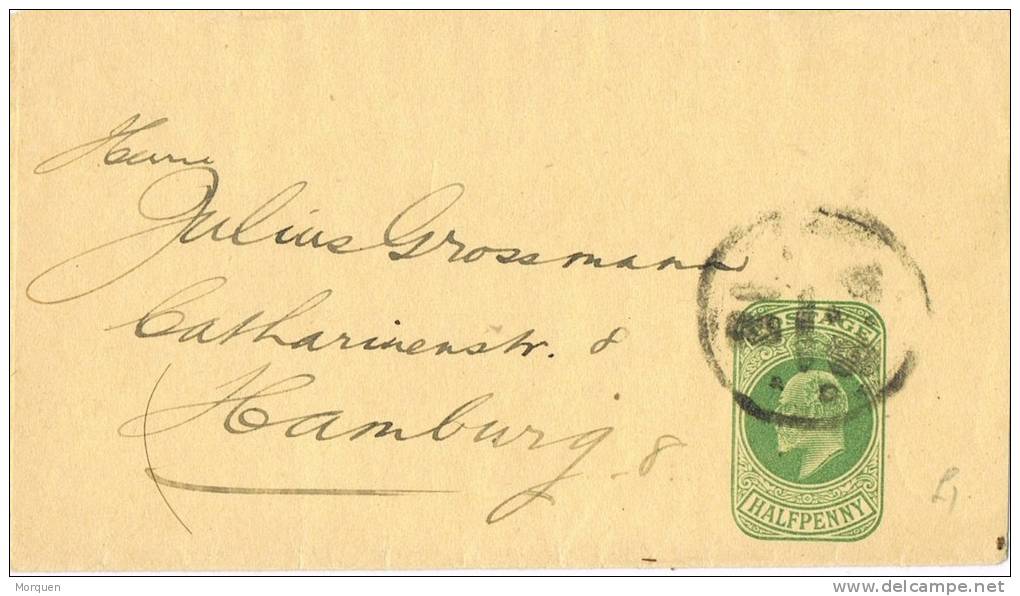 Herrn
Julius Grossmann
Catharinenstr. 8
Hamburg 8
POSTAGE
HALFPENNY
Morquen
www.delcampe.net